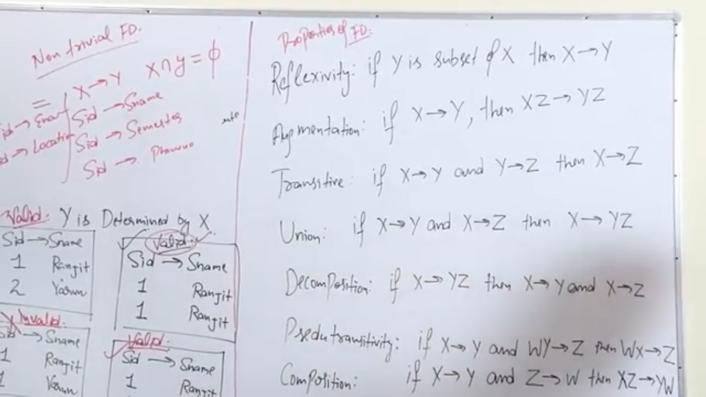 Non trivial FD.
X→Y X∩Y = ϕ
=
Sid → Sname
Sid → Semester
→ Location
Sid →
Valid: Y is Determined by X
Sid → Sname
1 Ranjit
2 Varun
Valid
Sid → Sname
1 Ranjit
1 Ranjit
X Invalid:
→ Sname
1 Ranjit
1 Varun
Valid
Sid → Sname
1 Ranjit
Properties of FD.
Reflexivity: if Y is subset of X then X→Y
Augmentation: if X→Y, then XZ→YZ
Transitive: if X→Y and Y→Z then X→Z
Union: if X→Y and X→Z then X→YZ
Decomposition: if X→YZ then X→Y and X→Z
Psedutransitivity: if X→Y and WY→Z then WX→Z
Composition: if X→Y and Z→W then XZ→YW